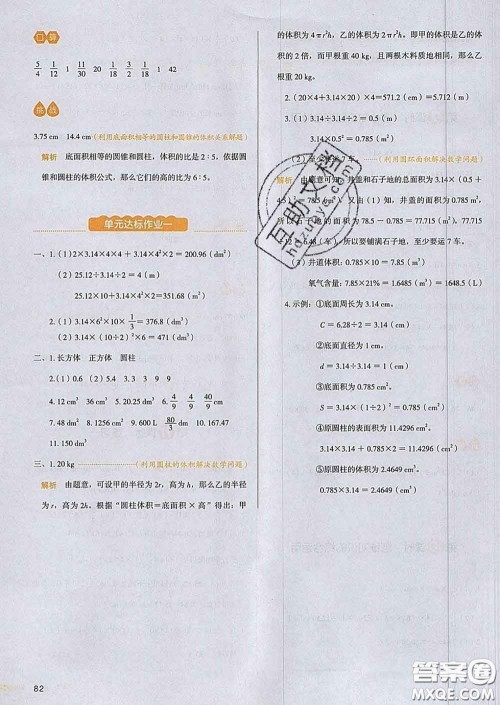 口算
5/4 1/12 1 11/30 20 1/18 3/2 1 42
挑战
3.75 cm 14.4 cm(利用底面积相等的圆柱和圆锥的体积关系解题)
解析 底面积相等的圆锥和圆柱，体积的比是2∶5，依据圆
锥和圆柱的体积公式，那么它们的高的比为6∶5。
单元达标作业一
一、1.(1)3.14×2×4×4+3.14×4²×2=200.96(dm²)
(2)25.12÷3.14÷2=4(dm)
25.12×10+3.14×4²×2=351.68(m²)
2.(1)3.14×6²×10×1/3=376.8(dm³)
(2)3.14×10²×(10÷2)²×6=471(dm³)
二、1.长方体 正方体 圆柱
2.(1)0.6 (2)5.4 3.(1)2 (2)4
4.12 cm³ 36 cm³ 5.20.25 dm³ 6.4/9 4/9 40/9
7.48 dm² 8.1256 cm² 9.600 L 80/3 dm³ 10.167.47
11.150 dm³
三、1.20 kg(利用圆柱的体积解决数学问题)
解析 由题意，可设甲的半径为2r，高为h，那么乙的半径
为r，高为2h。根据“圆柱体积=底面积×高”得出：甲
的体积为4πr²h，乙的体积为2πr²h。即甲的体积是乙的体
积的2倍，而甲根重40 kg，且两根木料质地相同，那么乙
根重20 kg。
2.(20×4+3.14×20)×4=571.2(cm)=5.712(m)
3.(1)3.14÷3.14÷2=0.5(m)
3.14×0.5²=0.785(m²)
(2)至少要运7车。(利用圆环面积解决数学问题)
解析 由题意可知，井盖和石子地的总面积为3.14×(0.5+
4.5)²=78.5(m²)，由(1)知，井盖的面积为3.14×0.5²=
0.785(m²)，所以石子地的面积为78.5-0.785=77.715(m²)，77.715
÷12≈6.48，所以要铺满石子地，至少要运7车。
(3)井道体积：0.785×10=7.85(m³)
氧气含量：7.85×21%=1.6485(m³)=1648.5(L)
4.示例：①底面周长为3.14 cm。
C=6.28÷2=3.14(cm)
②底面直径为1 cm。
d=3.14÷3.14=1(cm)
③底面积为0.785 cm²。
S=3.14×(1÷2)²=0.785(cm²)
④原圆柱的表面积为11.4296 cm²。
3.14×3.14+0.785×2=11.4296(cm²)
⑤原圆柱的体积为2.4649 cm³。
0.785×3.14=2.4649(cm³)
互助文档
hdzuoye.com
82
答案圈
MXQE.COM